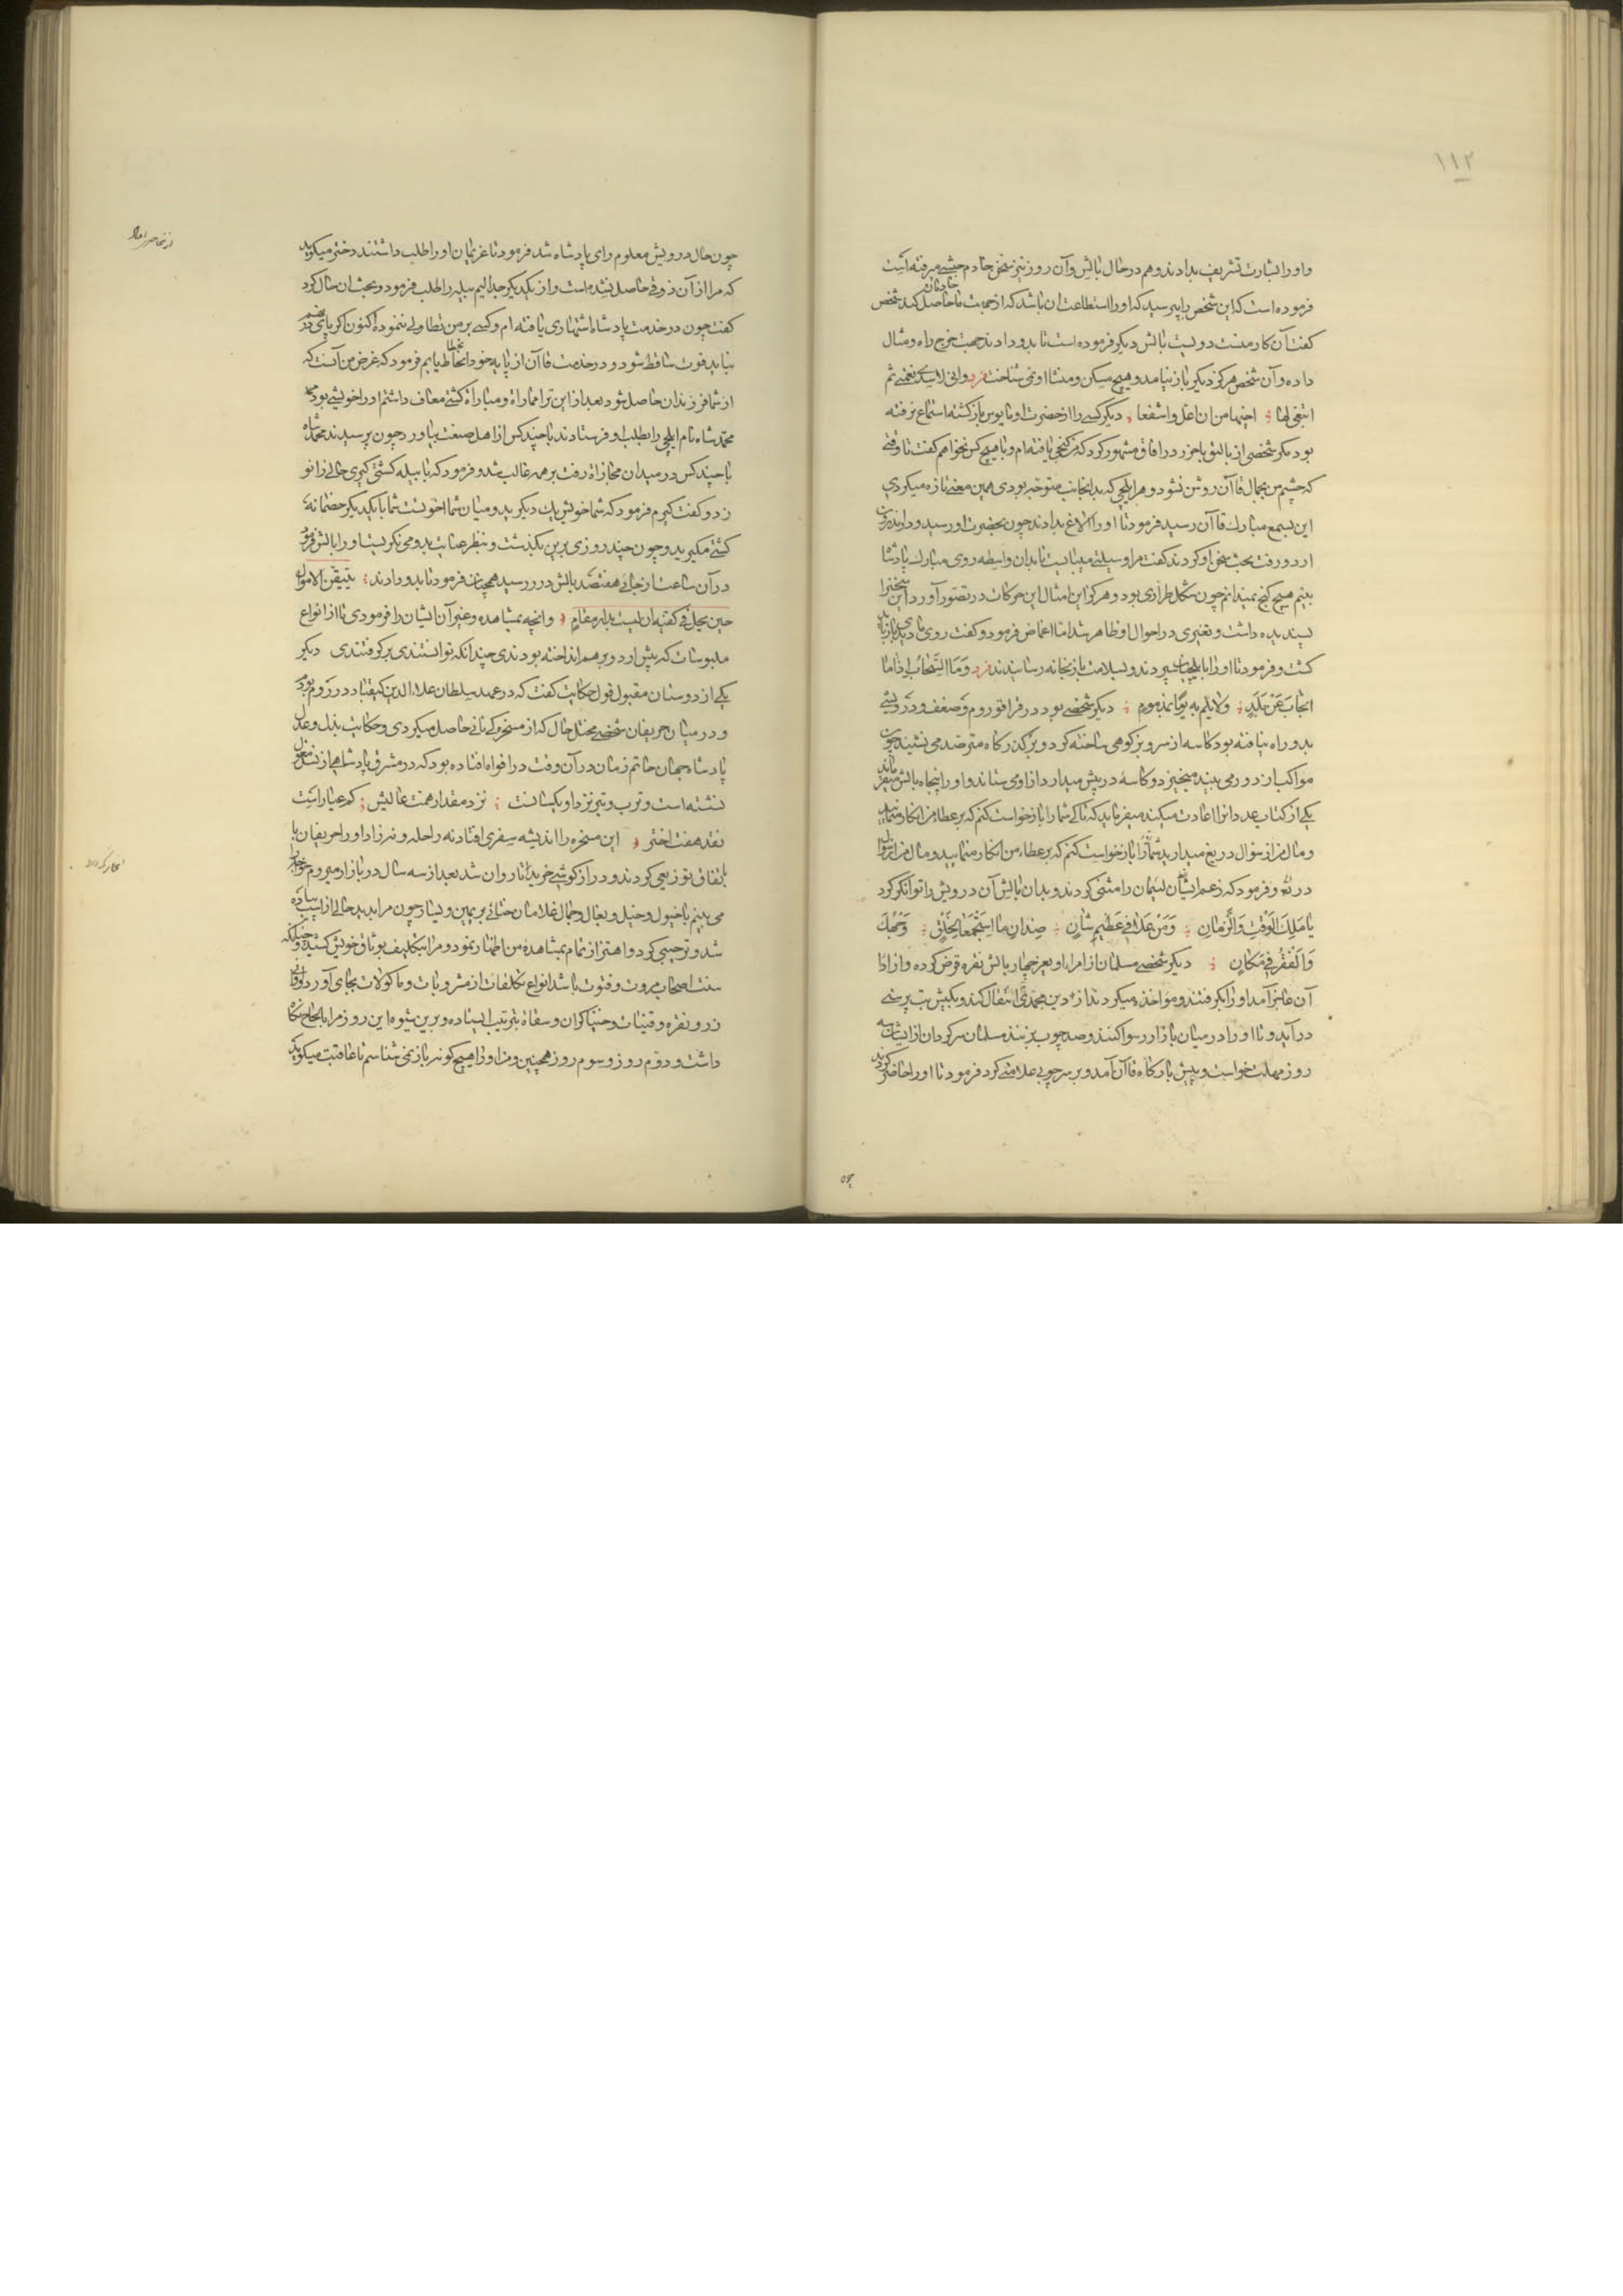 ۱۱۲
و او را بشارت تشریف بدادند و هم در حال بالش و آن روز نیز سخن خادم حبشی میرفته است
فرموده است که این شخص را بپرسید که او را استطاعت آن باشد که از جهت ما خادمان حاصل کند شخص
کفت آن کار منست دویست بالش دیکر فرموده است تا بدو دادند جهت خرج راه و مثال
داده و آن شخص هرکز دیکر باز نیامد و هیچ مسکن و منشا او نمی شناخت فرد وانی لا
ابتغی لها اجتها من ان اعل واشفعا دیکر کسی را از حضرت او مایوس بازکشته استماع نرفته
بود مکر شخصی از بالیق باخرز در افاق مشهور کرد که من کنجی یافته ام و با هیچ کس نخواهم کفت تا وقتی
که چشم من بجمال قاآن روشن نشود و هر ایلچی که بدانجانب متوجه بودی همین معنی تازه میکردی
این بسمع مبارک قاآن رسید فرمود تا او را الاغ بدادند چون بحضرت او رسید و در اندرون
اردو رفت بحث سخن او کردند کفت مرا وسیلتی میبایست تا بدان واسطه روی مبارک پادشا
بینم هیچ کنج نمیدانم چون شکل طراری بود و هر کرا این امثال این حرکات در تصور آورد این سخن را
پسندیده داشت و تغیری در احوال او ظاهر شد اما اغماض فرمود و کفت روی ما دیدی باز باید
کشت و فرمود تا او را با ایلچیان سپردند و بسلامت باز بخانه رسانیدند فرد وَمَا السَّحابُ اِذا ما
انجابَ عَن بَلَدٍ ولا یُلم به یومًا بمذموم دیکر شخصی بود در قراقوروم و ضعف و درویشی
بدو راه یافته بود کاسه از سروی بز کوهی ساخته کرد و بر کذرکاه مترصد می نشیند چون
مواکب از دور می بیند میخیزد و کاسه در پیش میدارد از او می ستاند و او را پنجاه بالش میفرماید
یکی از کتاب عدد انرا اعادت میکند میفرماید که تا کی شما را بازخواست کنم که بر عطاء من انکار منمایید
و مال مرا از سؤال دریغ میدارید شما را بازخواست کنم که بر عطاء من انکار منمایید و مال مرا از سؤال
دریغ و فرمود که زعم ایشان لئیمان را مثنی کردند و بدان بالش آن درویش را توانکر کرد
یا مَلِکَ الوَقتِ وَالزَّمانِ وَمَن عَلا فی عَظیمِ شانٍ ضِدّانِ ما استَجمَعا لِخَلقٍ وَجهُکَ
وَالفَقرُ فی مَکانٍ دیکر شخصی مسلمان از امراء اویغر چهار بالش نقره قرض کرده و از ادا
آن عاجز آمد او را بکرفتند و مواخذه میکردند از دین محمدی انتقال کند و بکیش بت پرستی
درآید و تا او را در میان بازار رسوا کنند و صد چوب بزنند مسلمان سرکردان از ایشان سه
روز مهلت خواست و پیش بارکاه قاآن آمد و بر سر چوبی علامتی کرد فرمود تا او را حاضر کردند
چون
چون حال درویش معلوم رای پادشاه شد فرمود تا غریمان او را طلب داشتند دختر میکوید
که مرا از آن ذوقی حاصل نشده است و از یکدیکر جداایم پیله را طلب فرمود و بحث ان حال کرد
کفت چون در خدمت پادشاه اشتهاری یافته ام و کسی بر من تطاولی ننموده اکنون اکر پای
نباید قوت ساقط شود و در خدمت قاآن از پایه خود انحطاط یابم فرمود که غرض من آنست که
از شما فرزندان حاصل شود بعد از این ترا مماراة و مباراة کشتی معاف داشتم او را خویشی بود
محمدشاه نام ایلچی را بطلب او فرستادند با چند کس از اهل صنعت بیاورد چون برسیدند محمدشاه
با چند کس در میدان مجازاة رفت بر همه غالب شد و فرمود که با پیله کشتی کیری حالی زانو
زد و کفت کیرم فرمود که شما خویش یک دیکرید و میان شما اخوتست شما با یکدیکر خصمانه
کشتی مکیرید و چون چند روزی برین بکذشت و بنظر عنایت بدو می نکریست او را بالش فرمود
در آن ساعت از جائی هفتصد بالش در رسید همچنان فرمود تا بدو دادند
حین یحل فی کفیه ان لیست بدار مقام و انچه بمشاهده و غیر آن ایشان را فرمودی تا از انواع
ملبوسات که پیش اردو بر هم انداخته بودندی چندانکه توانستندی برکرفتندی دیکر
یکی از دوستان مقبول قول حکایت کفت که در عهد سلطان علاءالدین کیقباد در روم بودم
و در میان حریفان شخصی مختل حال که از مسخرکی نانی حاصل میکردی و حکایت بذل و عدل
پادشاه جهان حاتم زمان در آن وقت در افواه افتاده بود که در مشرق پادشاهی از نسل مغول
نشسته است و ترب و تبر نزد او یکسانست نزد مقدار همت عالیش کم عیار است
نقد هفت اختر این مسخره را اندیشه سفری افتاد نه راحله و نه زاد او را حریفان با
باتفاق توزیعی کردند و درازکوشی خریدند تا روان شد بعد از سه سال در بازار میروم خواجه را
می بینم با خیول و خیل و بغال و جمال غلامان ختائی بر یمین و یسار چون مرا بدید حالی از اسب پیاده
شد و ترحیبی کرد و اهتزاز تمام بمشاهده من اظهار نمود و مرا بتکلیف بوثاق خویش کشید و چنانکه
سنت اصحاب مروت و فتوت باشد انواع تکلفات از مشروبات و ماکولات بجای آورد و اوانی
زر و نقره و قینات و خنیاکران و سقاة بترتیب ایستاده و برین شیوه این روز مرا بالحاح نکاه
داشت و دوم روز و سوم روز همچنین و من او را هیچ کونه باز نمی شناسم تا عاقبت میکوید که